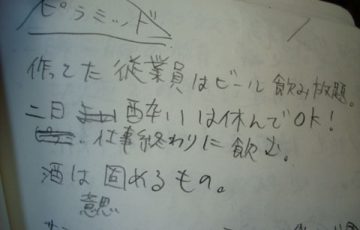 ピラミッド
作てた従業員はビール飲み放題。
二日酔いは休んでOK!
仕事終わりに飲む。
酒は固めるもの。
意思